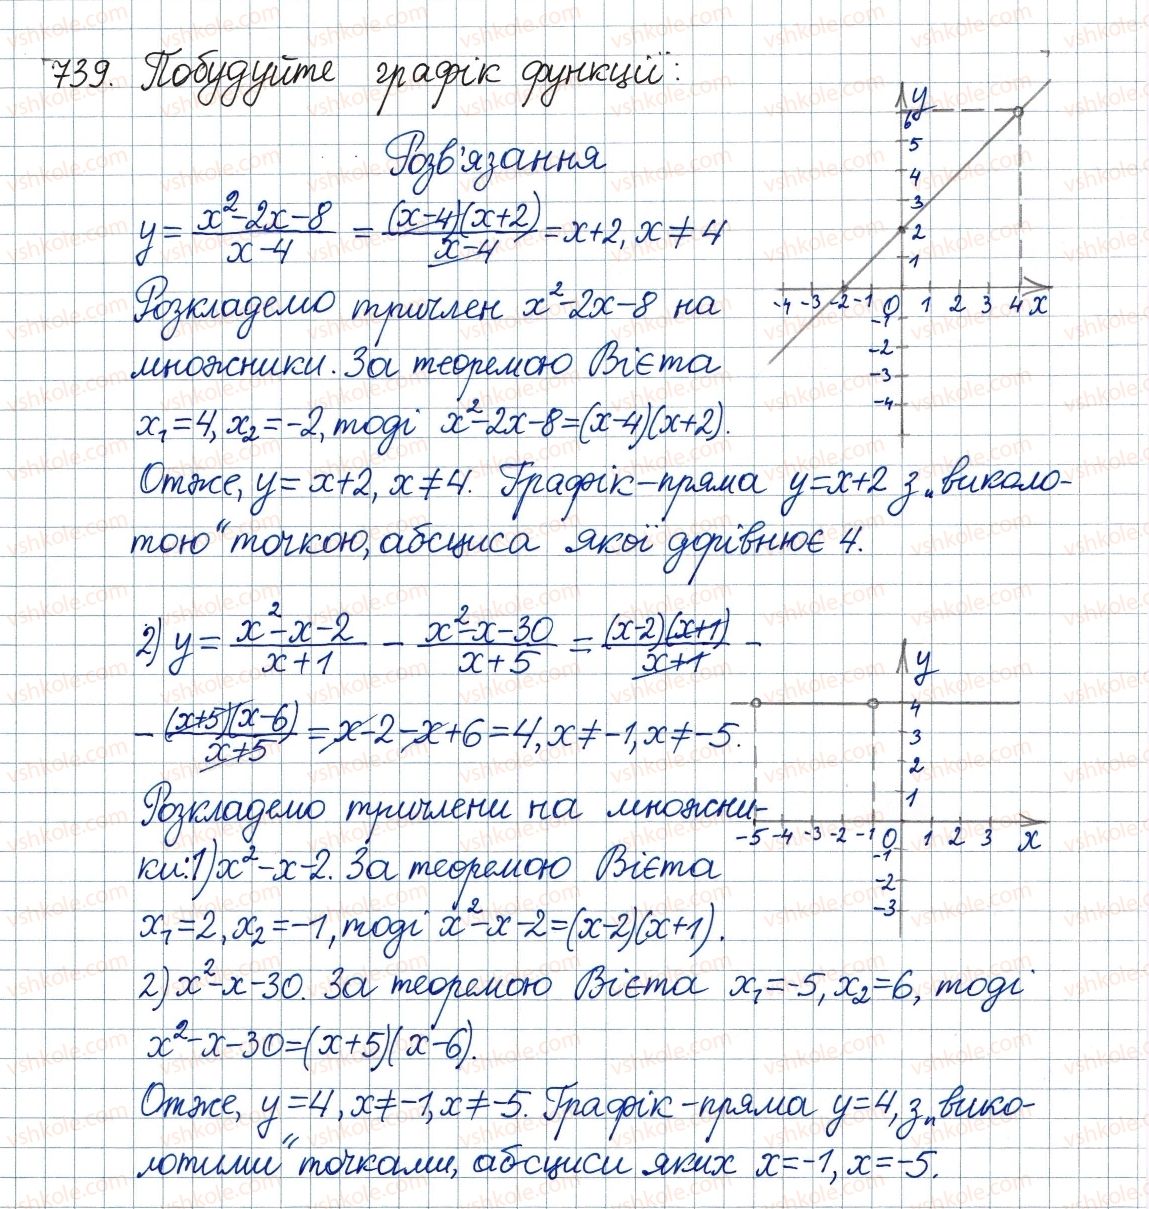 739. Побудуйте графік функції:
Розв'язання
y = (x²-2x-8)/(x-4) = ((x-4)(x+2))/(x-4) = x+2, x ≠ 4
Розкладемо тричлен x²-2x-8 на
множники. За теоремою Вієта
x₁=4, x₂=-2, тоді x²-2x-8=(x-4)(x+2).
Отже, y = x+2, x ≠ 4. Графік - пряма y=x+2 з „виколо-
тою" точкою, абсциса якої дорівнює 4.
y
6
5
4
3
2
1
-4 -3 -2 -1 0 1 2 3 4 x
-1
-2
-3
-4
2) y = (x²-x-2)/(x+1) - (x²-x-30)/(x+5) = ((x-2)(x+1))/(x+1) -
- ((x+5)(x-6))/(x+5) = x-2-x+6 = 4, x ≠ -1, x ≠ -5.
Розкладемо тричлени на множни-
ки: 1) x²-x-2. За теоремою Вієта
x₁=2, x₂=-1, тоді x²-x-2=(x-2)(x+1).
2) x²-x-30. За теоремою Вієта x₁=-5, x₂=6, тоді
x²-x-30=(x+5)(x-6).
Отже, y=4, x≠-1, x≠-5. Графік - пряма y=4, з „вико-
лотими" точками, абсциси яких x=-1, x=-5.
y
4
3
2
1
-5 -4 -3 -2 -1 0 1 2 3 x
-1
-2
-3
vshkole.com